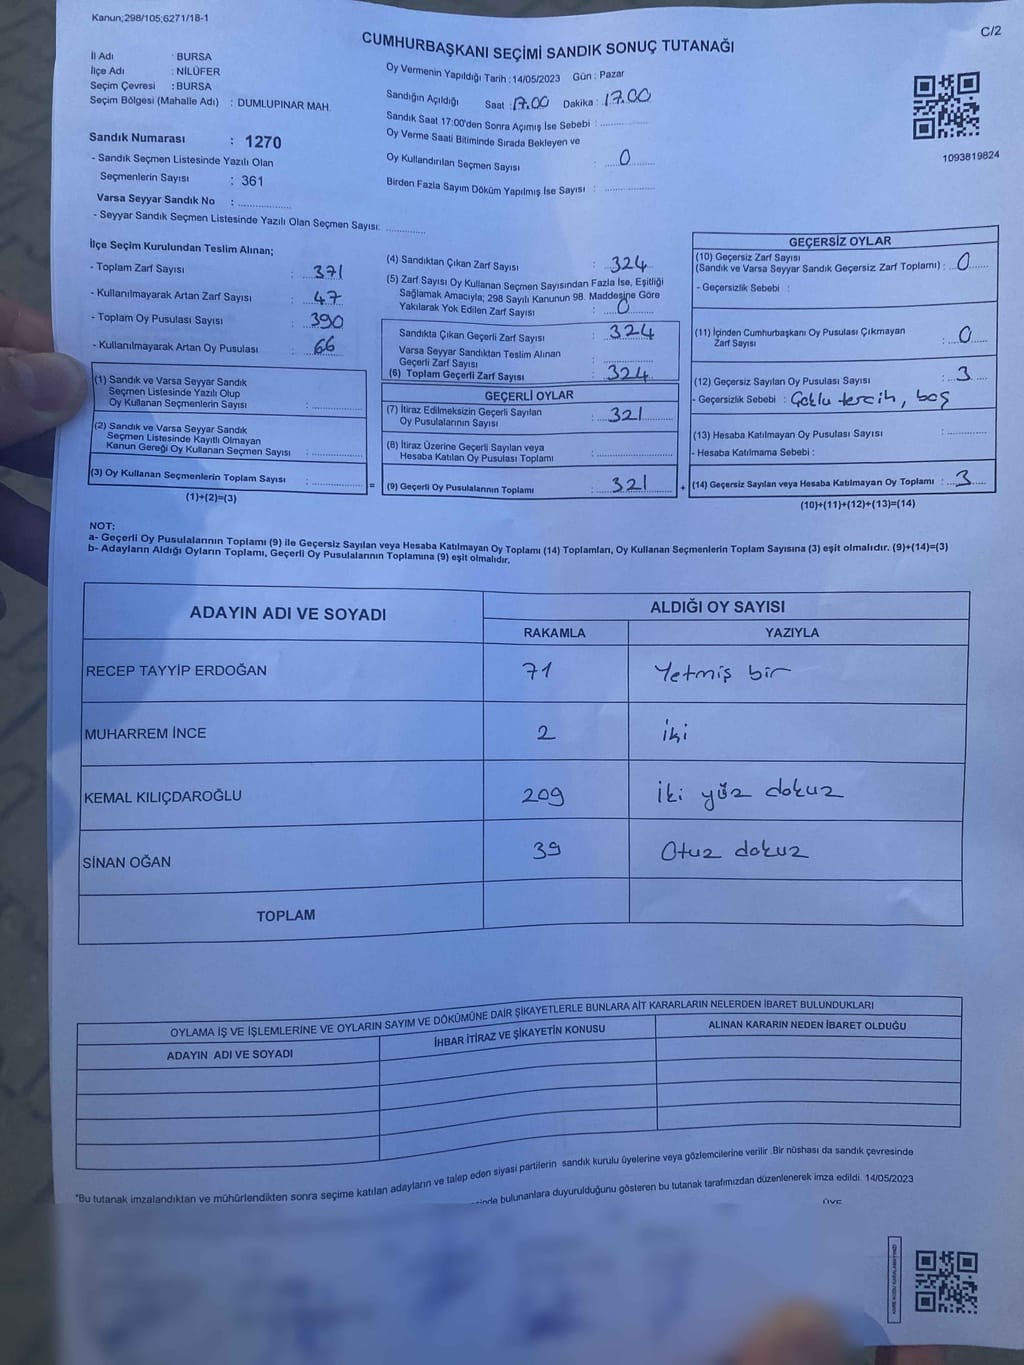 Kanun;298/105;6271/18-1
C/2
CUMHURBAŞKANI SEÇİMİ SANDIK SONUÇ TUTANAĞI
İl Adı : BURSA
İlçe Adı : NİLÜFER
Seçim Çevresi : BURSA
Seçim Bölgesi (Mahalle Adı) : DUMLUPINAR MAH.
Sandık Numarası : 1270
- Sandık Seçmen Listesinde Yazılı Olan
Seçmenlerin Sayısı : 361
Varsa Seyyar Sandık No : ..............
- Seyyar Sandık Seçmen Listesinde Yazılı Olan Seçmen Sayısı: ............
Oy Vermenin Yapıldığı Tarih : 14/05/2023 Gün : Pazar
Sandığın Açıldığı Saat : 17.00 Dakika : 17.00
Sandık Saat 17:00'den Sonra Açımış İse Sebebi : ..............
Oy Verme Saati Bitiminde Sırada Bekleyen ve
Oy Kullandırılan Seçmen Sayısı : 0
Birden Fazla Sayım Döküm Yapılmış İse Sayısı : ..............
1093819824
İlçe Seçim Kurulundan Teslim Alınan;
- Toplam Zarf Sayısı : 371
- Kullanılmayarak Artan Zarf Sayısı : 47
- Toplam Oy Pusulası Sayısı : 390
- Kullanılmayarak Artan Oy Pusulası : 66
(1) Sandık ve Varsa Seyyar Sandık
Seçmen Listesinde Yazılı Olup
Oy Kullanan Seçmenlerin Sayısı : ..............
(2) Sandık ve Varsa Seyyar Sandık
Seçmen Listesinde Kayıtlı Olmayan
Kanun Gereği Oy Kullanan Seçmen Sayısı : ..............
(3) Oy Kullanan Seçmenlerin Toplam Sayısı : ..............
(1)+(2)=(3)
=
(4) Sandıktan Çıkan Zarf Sayısı : 324
(5) Zarf Sayısı Oy Kullanan Seçmen Sayısından Fazla İse, Eşitliği
Sağlamak Amacıyla; 298 Sayılı Kanunun 98. Maddesine Göre
Yakılarak Yok Edilen Zarf Sayısı : 0
Sandıkta Çıkan Geçerli Zarf Sayısı : 324
Varsa Seyyar Sandıktan Teslim Alınan
Geçerli Zarf Sayısı : ..............
(6) Toplam Geçerli Zarf Sayısı : 324
GEÇERLİ OYLAR
(7) İtiraz Edilmeksizin Geçerli Sayılan
Oy Pusulalarının Sayısı : 321
(8) İtiraz Üzerine Geçerli Sayılan veya
Hesaba Katılan Oy Pusulası Toplamı : ..............
(9) Geçerli Oy Pusulalarının Toplamı : 321
+
GEÇERSİZ OYLAR
(10) Geçersiz Zarf Sayısı
(Sandık ve Varsa Seyyar Sandık Geçersiz Zarf Toplamı) : 0
- Geçersizlik Sebebi :
(11) İçinden Cumhurbaşkanı Oy Pusulası Çıkmayan
Zarf Sayısı : 0
(12) Geçersiz Sayılan Oy Pusulası Sayısı : 3
- Geçersizlik Sebebi : Çoklu tercih, boş
(13) Hesaba Katılmayan Oy Pusulası Sayısı : ..............
- Hesaba Katılmama Sebebi :
(14) Geçersiz Sayılan veya Hesaba Katılmayan Oy Toplamı : 3
(10)+(11)+(12)+(13)=(14)
NOT:
a- Geçerli Oy Pusulalarının Toplamı (9) ile Geçersiz Sayılan veya Hesaba Katılmayan Oy Toplamı (14) Toplamları, Oy Kullanan Seçmenlerin Toplam Sayısına (3) eşit olmalıdır. (9)+(14)=(3)
b- Adayların Aldığı Oyların Toplamı, Geçerli Oy Pusulalarının Toplamına (9) eşit olmalıdır.
ADAYIN ADI VE SOYADI ALDIĞI OY SAYISI
RAKAMLA YAZIYLA
RECEP TAYYİP ERDOĞAN 71 Yetmiş bir
MUHARREM İNCE 2 iki
KEMAL KILIÇDAROĞLU 209 İki yüz dokuz
SİNAN OĞAN 39 Otuz dokuz
TOPLAM
OYLAMA İŞ VE İŞLEMLERİNE VE OYLARIN SAYIM VE DÖKÜMÜNE DAİR ŞİKAYETLERLE BUNLARA AİT KARARLARIN NELERDEN İBARET BULUNDUKLARI
ADAYIN ADI VE SOYADI İHBAR İTİRAZ VE ŞİKAYETİN KONUSU ALINAN KARARIN NEDEN İBARET OLDUĞU
"Bu tutanak imzalandıktan ve mühürlendikten sonra seçime katılan adayların ve talep eden siyasi partilerin sandık kurulu üyelerine veya gözlemcilerine verilir .Bir nüshası da sandık çevresinde
bulunanlara duyurulduğunu gösteren bu tutanak tarafımızdan düzenlenerek imza edildi. 14/05/2023